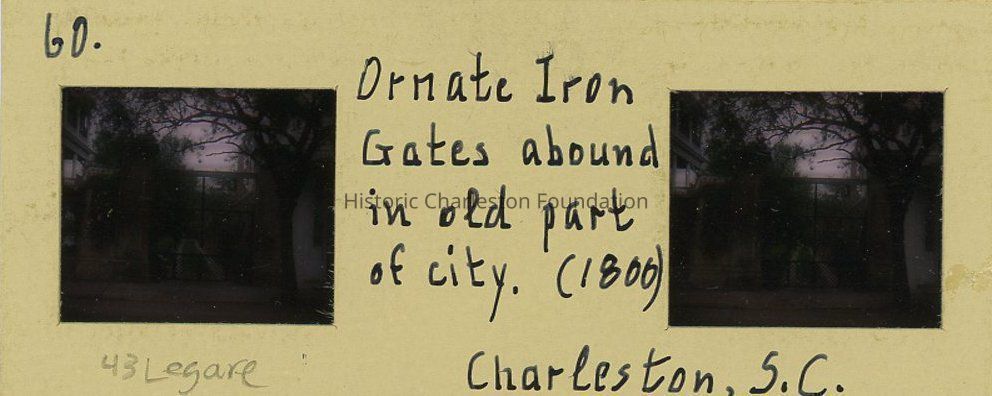 60.
Ornate Iron
Gates abound
in old part
of city. (1800)
Historic Charleston Foundation
43 Legare
Charleston, S.C.